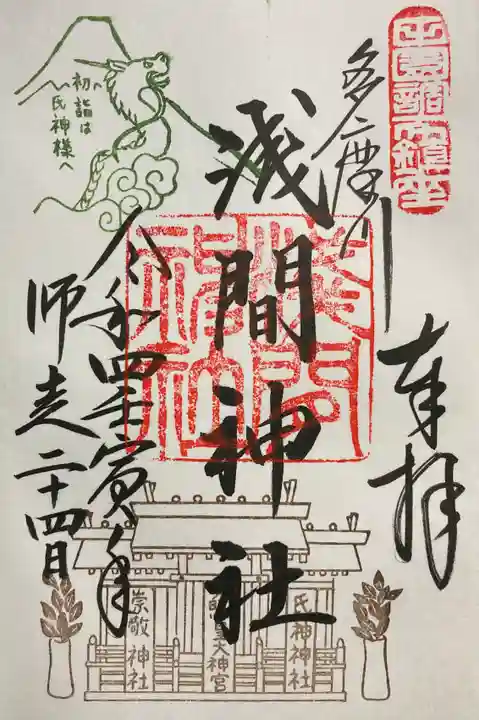 田園調布鎮座
奉拝
多摩川
浅間神社
淺間
神社
令和四壬寅年
師走二十四日
初詣は
氏神様へ
氏神神社
皇大神宮
崇敬神社